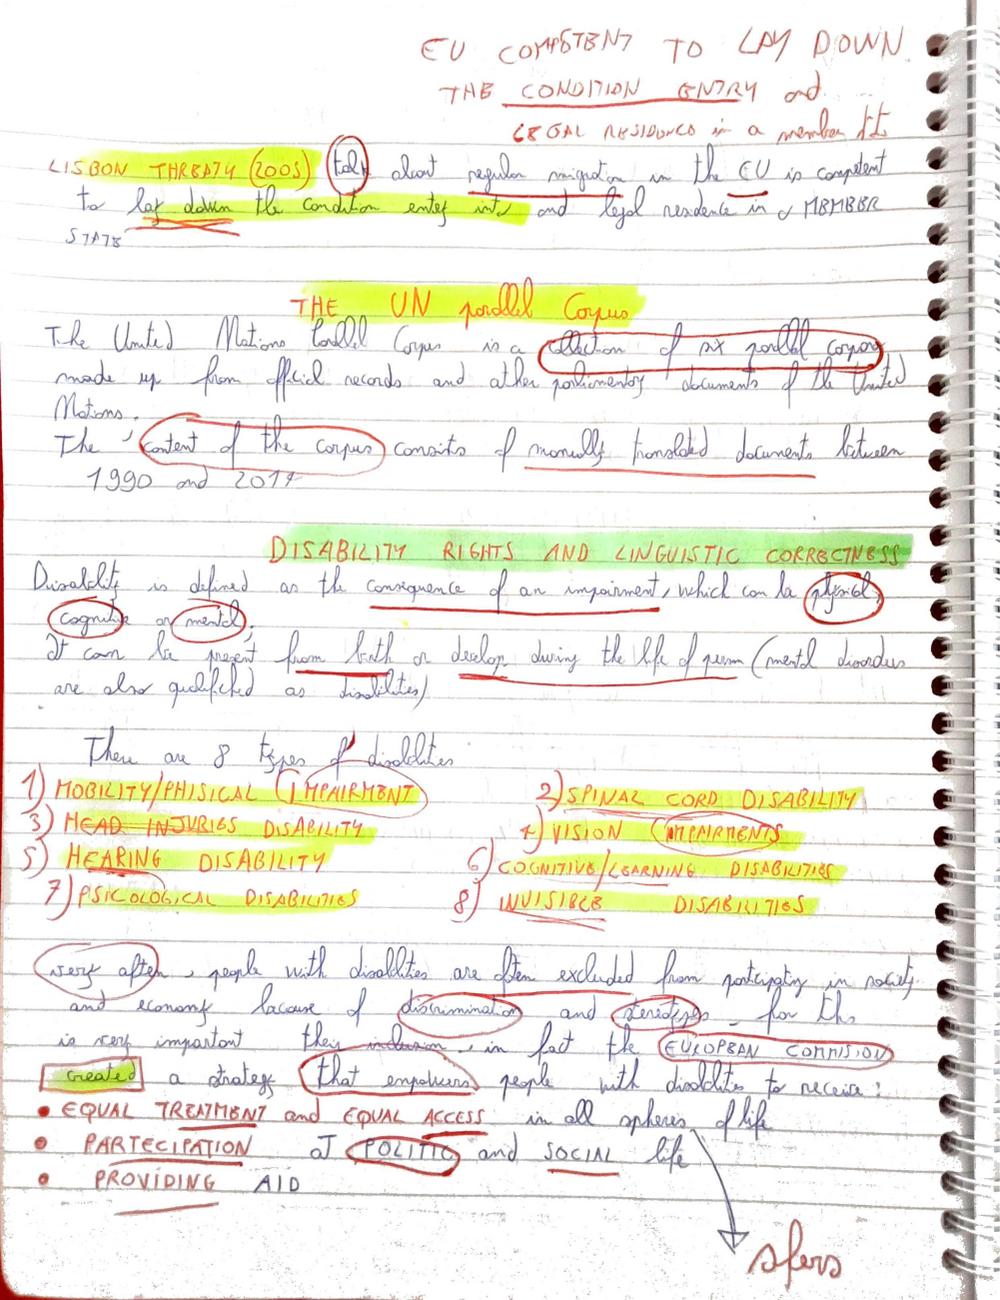 EU COMPETENT TO LAY DOWN
THE CONDITION ENTRY and
LEGAL RESIDENCE in a member
LISBON TREATY (2005) talk about regular migration in the EU is competent
to lay down the condition entry into and legal residence in a MEMBER
STATE
THE UN parallel Corpus
The United Nations Parallel Corpus is a collection of six parallel corpora
made up from official records and other parlimentary documents of the United
Nations.
The content of the corpus consists of manually translated documents between
1990 and 2014
DISABILITY RIGHTS AND LINGUISTIC CORRECTNESS
Disability is defined as the consequence of an impairment, which can be physical,
cognitive or mental.
It can be present from birth or develop during the life of person (mental disorders
are also qualifiched as disabilities)
There are 8 types of disabilities
1) MOBILITY/PHISICAL IMPAIRMENT 2) SPINAL CORD DISABILITY
3) HEAD INJURIES DISABILITY 4) VISION IMPAIRMENTS
5) HEARING DISABILITY 6) COGNITIVE/LEARNING DISABILITIES
7) PSICOLOGICAL DISABILITIES 8) INVISIBLE DISABILITIES
very often, people with disabilities are often excluded from participating in society
and economy because of discrimination and stereotypes, for this
is very important their inclusion, in fact the EUROPEAN COMMISION
created a strategy that empowers people with disabilities to receive:
• EQUAL TREATMENT and EQUAL ACCESS in all spheres of life
• PARTECIPATION AT POLITIC and SOCIAL life
• PROVIDING AID
sfers